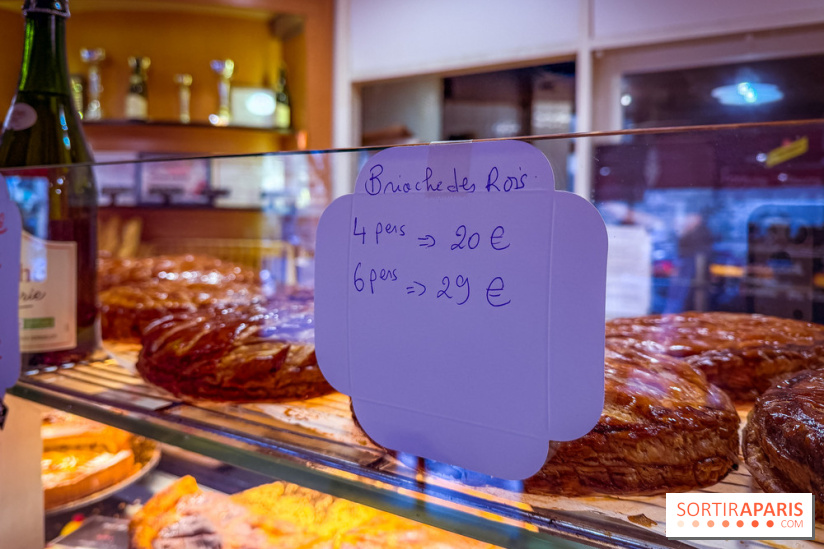 Brioche des Rois
4 pers => 20 €
6 pers => 29 €
SORTIRAPARIS
.COM